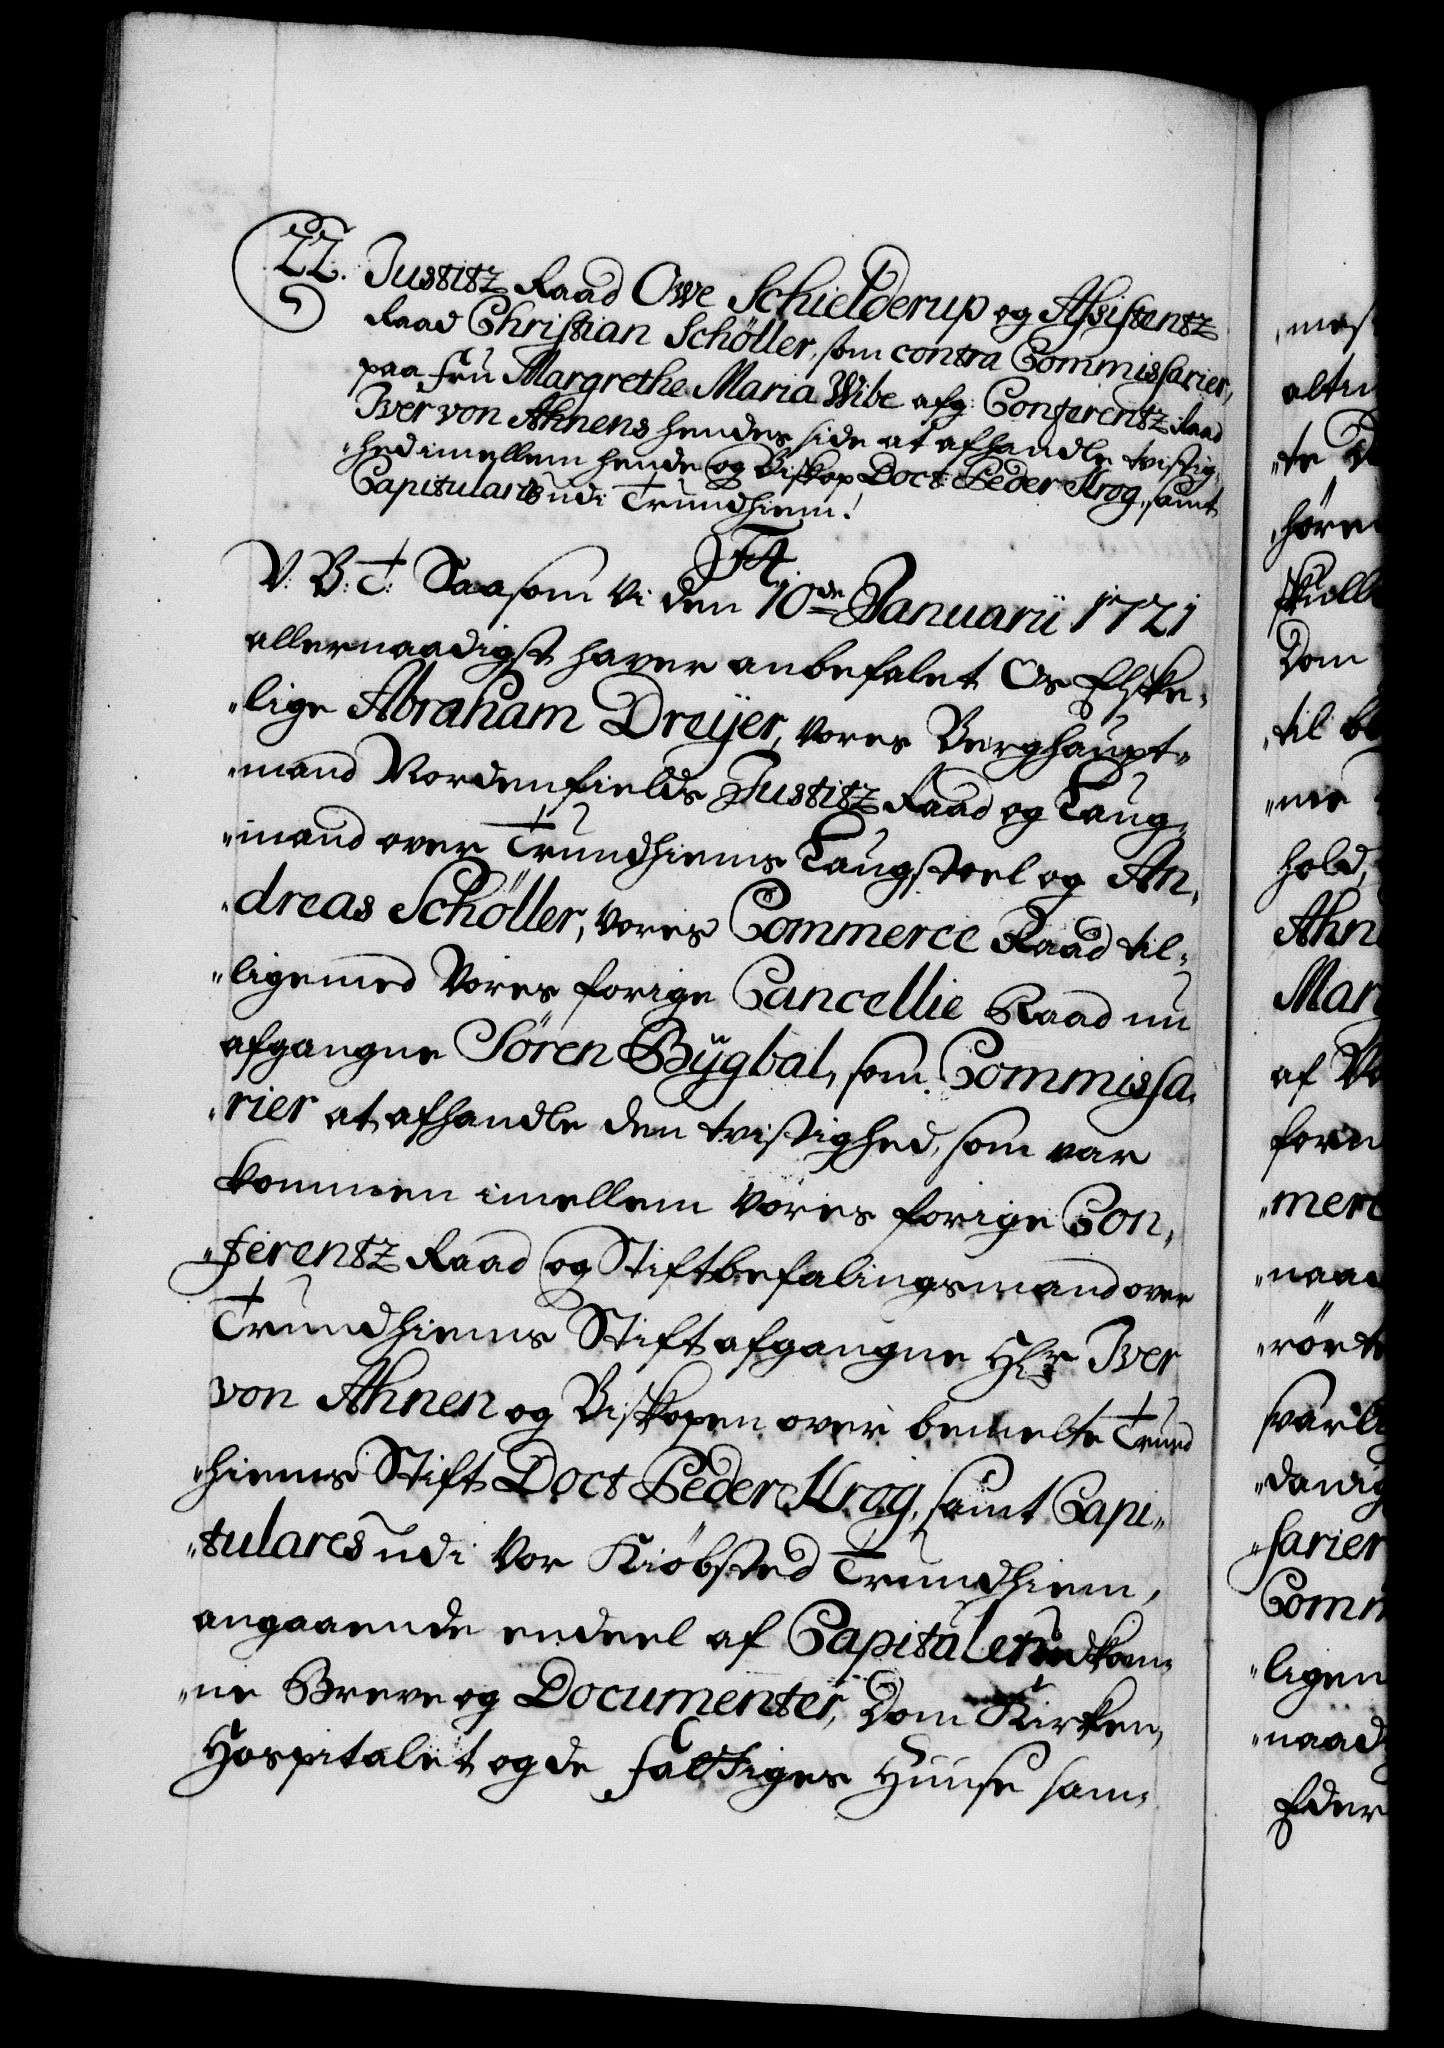 22. Justitz Raad Owe Schielderup og Assistentz
Raad Christian Schöller, som contra Commissarier,
paa Fru Margrethe Maria Wibe afg: Conferentz Raad
Iver von Ahnens hendes side at afhandle tvistig-
„hed imellem hende og Biskop Doct: Peder Krog, samt
Capitulares udi Trundhiem.
F4.
V: B: T: Saasom Vi den 10de Januarii 1721
allernaadigst haver anbefalet Os Elske-
„lige Abraham Dreÿer, Vores Berghaupt-
„mand Nordenfields Justitz Raad og Laug-
„mand over Trundhiems Laugstoel og An-
„dreas Schöller, Vores Commerce Raad til-
„ligemed Vores forige Cancellie Raad nu
afgangne Sören Bÿgbal, som Commissa-
„rier at afhandle den tvistighed, som var
kommen imellem Vores forige Con-
„ferentz Raad og Stiftbefalingsmand over
Trundhiems Stift afgangne Hr: Iver
von Ahnen og Biskopen over bemelte Trund
„hiems Stift Doct Peder Krog, samt Capi-
„tulares udi Vor Kiöbsted Trundhiem,
angaaende endeel af Capitulen undkom-
„ne Breve og Documenter, Dom Kirken,
Hospitalet og de fattiges Huuse sam-